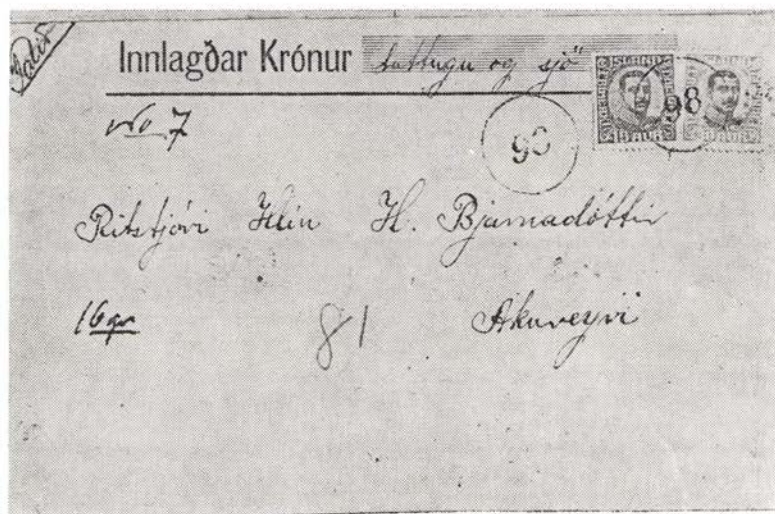 Innlagðar Krónur tuttugu og sjö
No 7
98
98
Ritstjóri Hlín H. Bjarnadóttir
16 gr
81
Akureyri